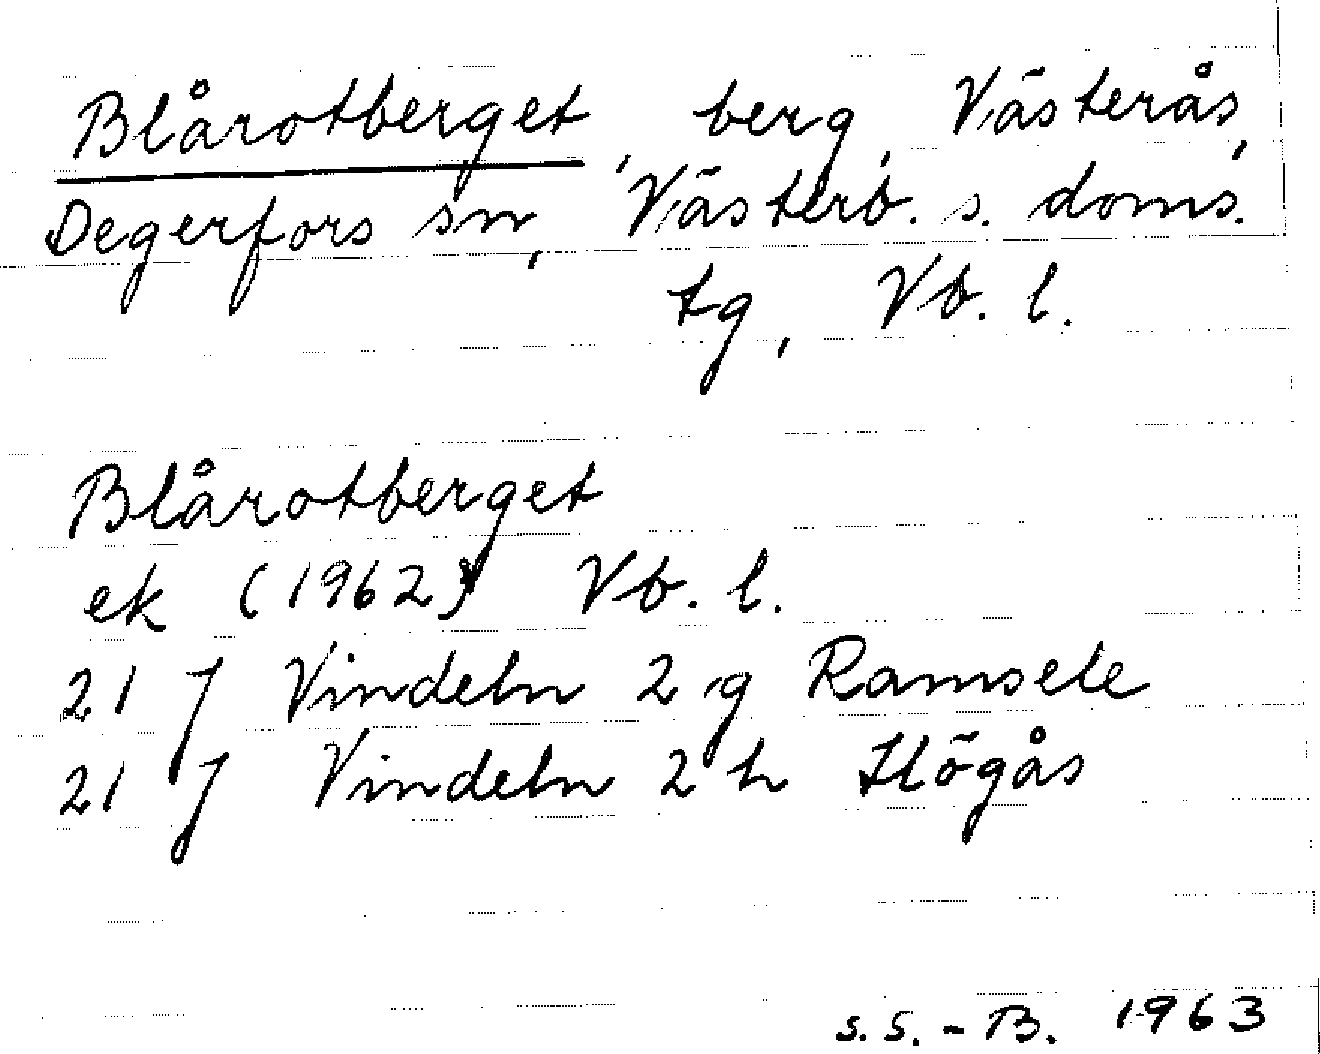 Blårotberget, berg, Västerås,
Degerfors sn, Västerb. s. doms.
tg, Vb. l.
Blårotberget
ek (1962) Vb. l.
21 J Vindeln 2 g Ramsele
21 J Vindeln 2 h Högås
S. S. - B. 1963